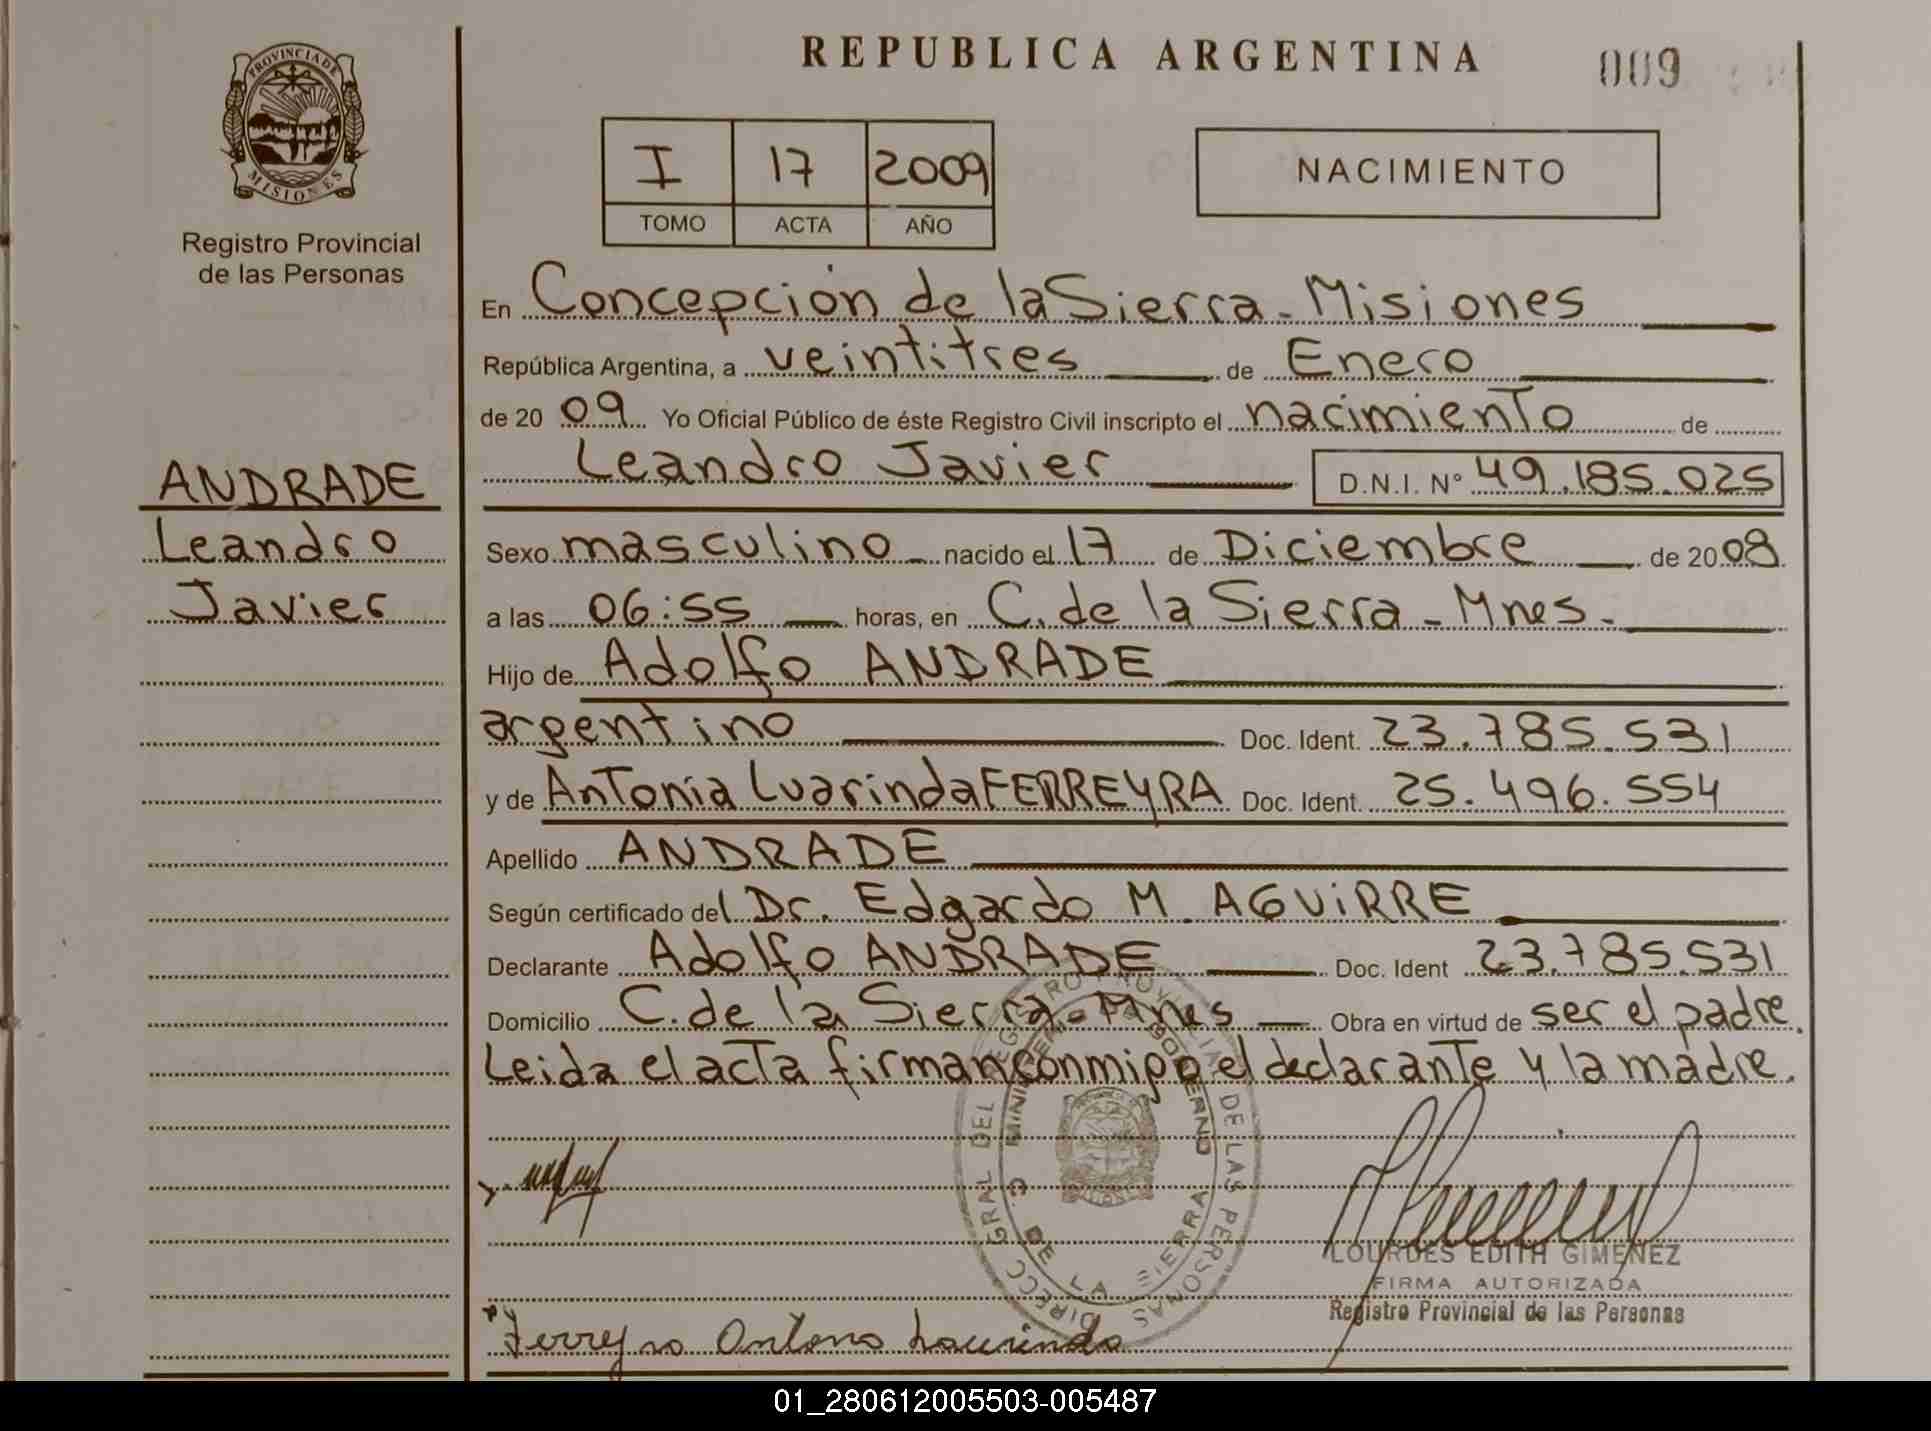 REPUBLICA ARGENTINA
009
PROVINCIA DE
MISIONES
Registro Provincial
de las Personas
I 17 2009
TOMO ACTA AÑO
NACIMIENTO
En Concepción de la Sierra - Misiones
República Argentina, a veintitres de Enero
de 2009 Yo Oficial Público de éste Registro Civil inscripto el nacimiento de
Leandro Javier D.N.I. N° 49.185.025
ANDRADE
Leandro
Javier
Sexo masculino nacido el 17 de Diciembre de 2008
a las 06:55 horas, en C. de la Sierra - Mnes.
Hijo de Adolfo ANDRADE
argentino Doc. Ident. 23.785.531
y de Antonia Luarinda FERREYRA Doc. Ident. 25.496.554
Apellido ANDRADE
Según certificado del Dr. Edgardo M. AGUiRRE
Declarante Adolfo ANDRADE Doc. Ident 23.785.531
Domicilio C. de la Sierra - Mnes Obra en virtud de ser el padre.
Leida el acta firman conmigo el declarante y la madre.
DIRECC GRAL DEL REGISTRO PROVINCIAL DE LAS PERSONAS
MINISTERIO DE GOBIERNO
C. DE LA SIERRA
LOURDES EDITH GIMENEZ
FIRMA AUTORIZADA
Registro Provincial de las Personas
Ferreyra Antona Laurinda
01_280612005503-005487